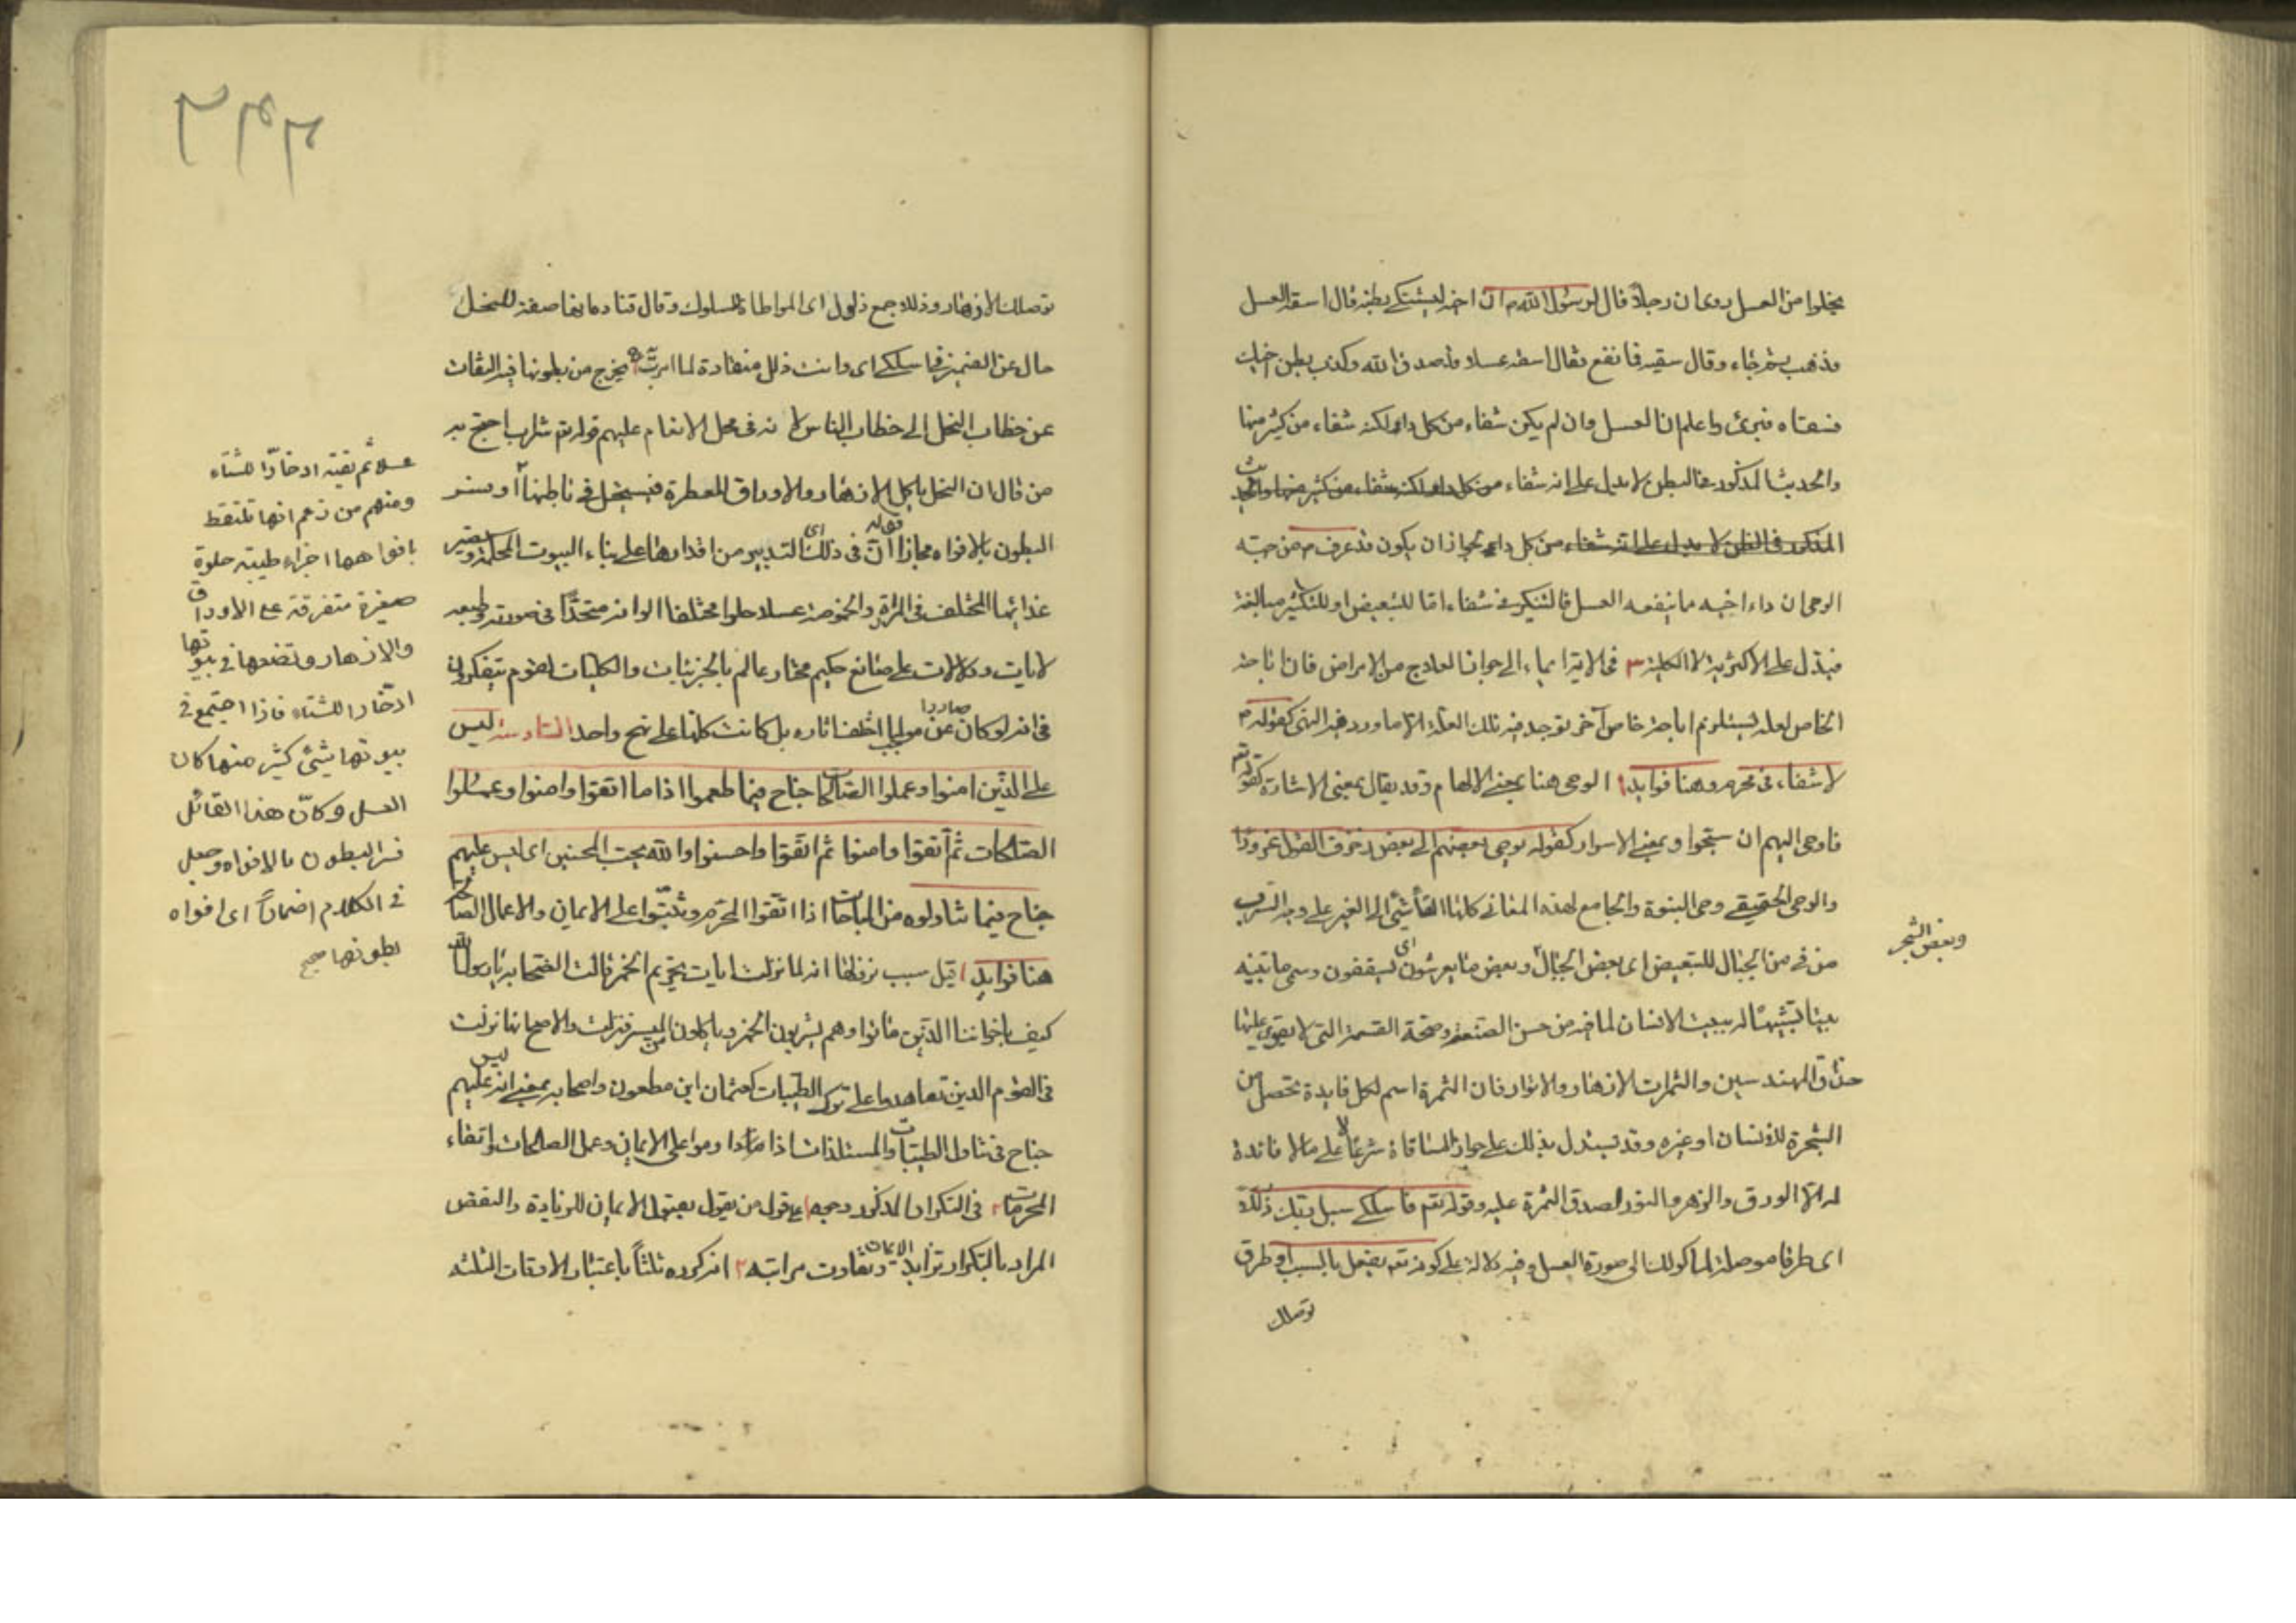 يخلوا من العسل روى ان رجلا قال لرسول الله م ان اخى ليشتكى بطنه فقال اسقه العسل
فذهب ثم جاء وقال سقيه فما نفع فقال اسقه عسلا فلصدق الله وكذب بطن اخيك
فسقاه فبرئ واعلم ان العسل وان لم يكن شفاء من كل داء لكنه شفاء من كثير منها
والحديث المذكور فى البطن لا يدل على انه شفاء من كل داء لكنه شفاء من كثير منها والحديث
المذكور فى البطن لا يدل على انه شفاء من كل داء لجواز ان يكون قد عرف م من جهة
الوحى ان داء اخيه ما ينفعه العسل فالتنكير فى شفاء اما للتبعيض او للتكثير مبالغة
فيدل على الاكثرية لا الكلية ٣ فى الاية ايماء الى جواز العلاج من الامراض فان اباحة
الخاص لعلة يستلزم اباحة خاص آخر توجد فيه تلك العلة الا ما ورد فيه النهى كقوله م
لا شفاء فى محرم وهنا فوايد ١ الوحى هنا بمعنى الالهام وقد يقال بمعنى الاشارة كقوله تع
فاوحى اليهم ان سبحوا وبمعنى الاسرار كقوله يوحى بعضهم الى بعض زخرف القول غرورا
والوحى الحقيقى وحى النبوة والجامع لهذه المعانى كلها القاء شئ الى الغير على وجه السر
من فى من الجبال للتبعيض اى بعض الجبال وبعض ما يعرشون اى يسقفون وسمى ما تبنيه
وبعض الشجر
بيتا تشبيها له ببيت الانسان لما فيه من حسن الصنعة وصحة القسمة التى لا يقوى عليها
حذاق المهندسين والثمرات الازهار والانوار فان الثمرة اسم لكل فايدة تحصل من
الشجرة للانسان او غيره وقد يستدل بذلك على جواز المساقاة شرعا على ما لا فائدة
له الا الورق والزهر والنور لصدق الثمرة عليه وقوله تع فاسلكى سبل ربك ذللا
اى طرقا موصلة لماكولك الى صورة العسل وفيه دلالة على كونه تع يفعل بالسبب او طرق
توصلك
توصلك الازهار وذللا جمع ذلول اى المواطاة للسلوك وقال قتادة انها صفة للنحل
حال عن الضمير فى فاسلكى اى وانت ذلل منقادة لما امرت به يخرج من بطونها فيه التفات
عن خطاب النحل الى خطاب الناس لانه فى محل الانعام عليهم قوله تع شراب احتج به
من قال ان النحل ياكل الازهار والاوراق العطرة فيستحيل فى باطنها او فسر
البطون بالافواه مجازا قوله ان فى ذلك اى التدبير من اقدارها على بناء البيوت المحكمة وتصيير
غذائها المختلف فى المرارة والحموضة عسلا حلوا مختلفا الوانه متحدا فى صورته وطبعه
لايات ودلالات على صانع حكيم مختار عالم بالجزئيات والكليات لقوم يتفكرون
فى انه لو كان صادرا عن موجب لما اختلف آثاره بل كانت كلها على نهج واحد السادسة ليس
على الذين امنوا وعملوا الصالحات جناح فيما طعموا اذا ما اتقوا وامنوا وعملوا
الصالحات ثم اتقوا وامنوا ثم اتقوا واحسنوا والله يحب المحسنين اى ليس عليهم
جناح فيما تناولوه من المباحات اذا اتقوا المحرم وثبتوا على الايمان والاعمال الصالحة
هنا فوايد ١ قيل سبب نزولها انه لما نزلت ايات تحريم الخمر قالت الصحابة يا رسول الله
كيف باخواننا الذين ماتوا وهم يشربون الخمر وياكلون الميسر فنزلت والاصح انها نزلت
فى القوم الذين تعاهدوا على ترك الطيبات كعثمان ابن مظعون واصحابه بمعنى انه ليس عليهم
جناح فى تناول الطيبات والمستلذات اذا ما داوموا على الايمان وعمل الصالحات واتقاء
المحرمات ٢ فى التكرار المذكور وجوه ١ على قول من يقول بقبول الايمان للزيادة والنقص
المراد بالتكرار تزايد الايمان وتفاوت مراتبه ٢ انه كرره ثلثا باعتبار الاوقات الثلثة
عسلا ثم تقيئه ادخارا للشتاء
ومنهم من زعم انها تلتقط
بافواهها اجزاء طيبة حلوة
صغيرة متفرقة على الاوراق
والازهار وتضعها فى بيوتها
ادخارا للشتاء فاذا اجتمع فى
بيوتها شئ كثير منها كان
العسل وكان هذا القائل
فسر البطون بالافواه وجعل
فى الكلام اضمارا اى افواه
بطونها صح